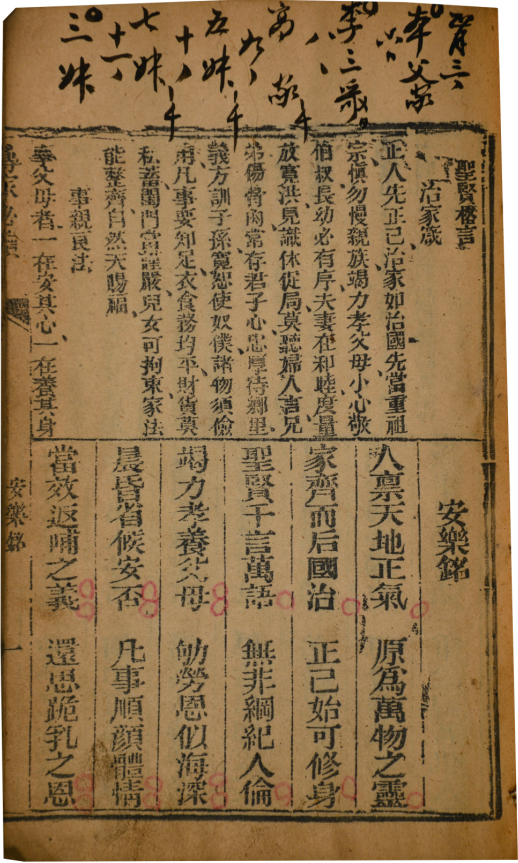 三
本父敬
六
李三弟
八
高敬
九
五妹
十
七妹
十一
三妹
聖賢格言
治家箴
正人先正己治家如治國先當重祖
宗愼勿慢親族竭力孝父母小心敬
伯叔長幼必有序夫妻在和睦度量
放寬洪見識休從局莫聽婦人言兄
弟傷骨肉常存君子心忠厚待鄉里
義方訓子孫寬恕使奴僕諸物須儉
用凡事要知足衣食務均平財貨莫
私蓄閨門當謹嚴兒女可拘束家法
能整齊自然天賜福
事親良法
奉父母者一在安其心一在養其身
安樂銘
人禀天地正氣 原爲萬物之靈
家齊而后國治 正己始可修身
聖賢千言萬語 無非綱紀人倫
竭力孝養父母 劬勞恩似海深
晨昏省候安否 凡事順顔體情
當效返哺之義 還思跪乳之恩
安樂銘
一